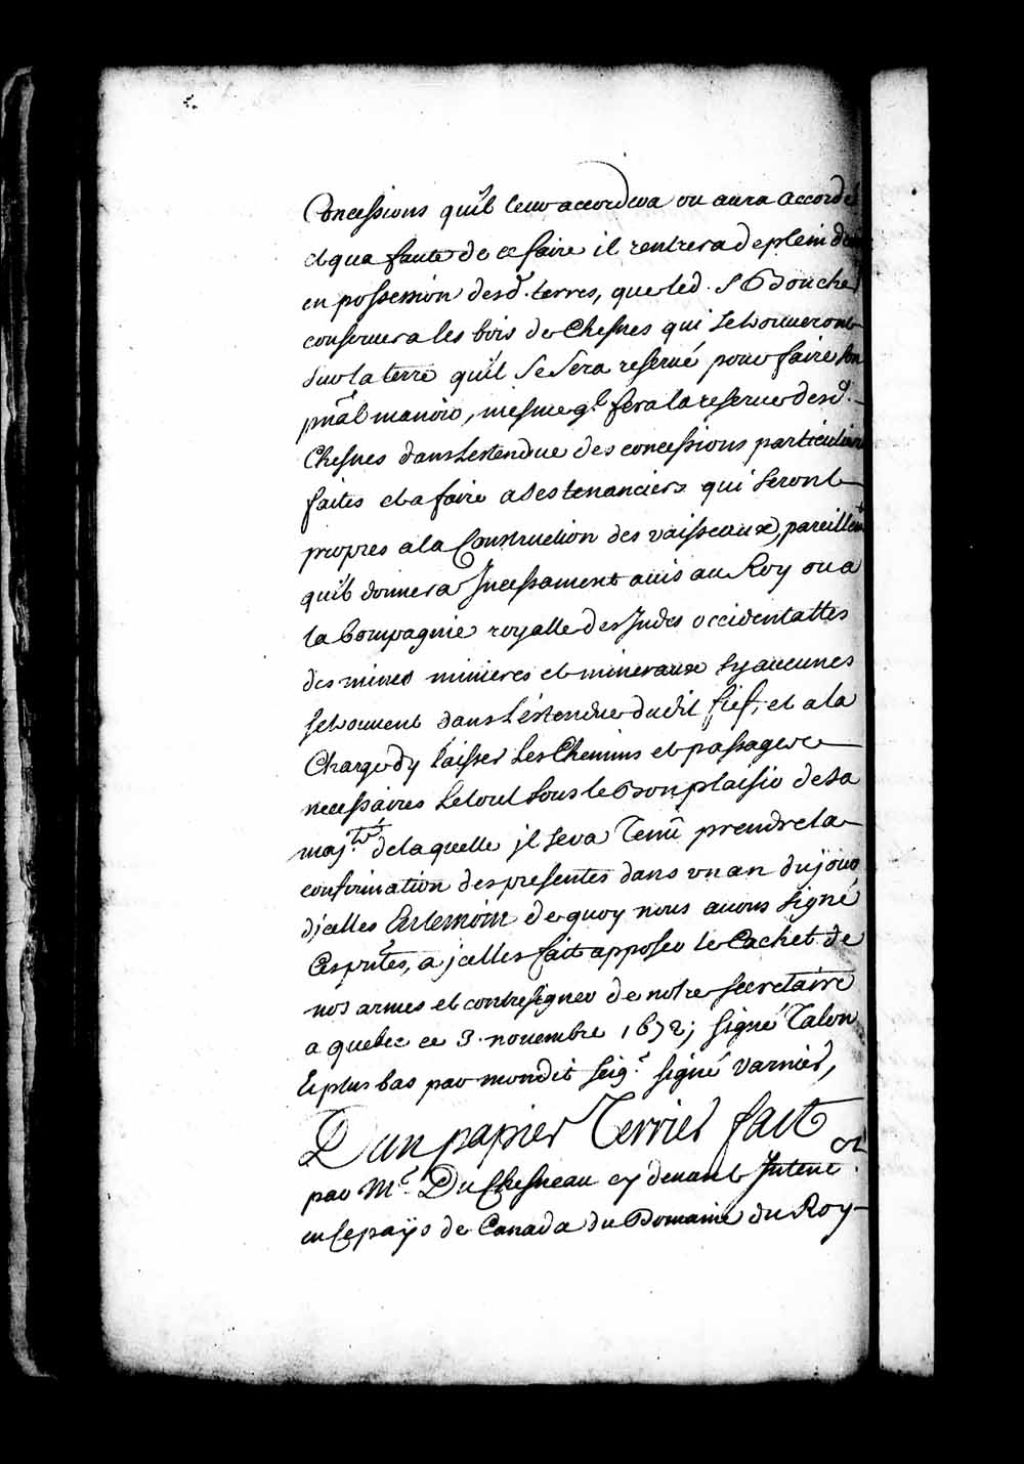 Concessions qu'il leur accordera ou aura accordé
et qua faute de ce faire il rentrera de plein
en possession desd. terres, que led. Sr Boucher
conservera les bois de Chesnes qui se trouveront
sur la terre qu'il se sera reservé pour faire son
prāl manoir, mesme ql fera la reserve desd.
Chesnes dans l'estendue des concessions particulieres
faites et a faire a ses tenanciers qui seront
propres a la Construction des vaisseaux, pareillemt
qu'il donnera Incessament avis au Roy ou a
la Compagnie royalle des Indes occidentalles
des mines minieres et mineraux sy aucunes
se trouvent dans l'éstendue dudit fief, et a la
Charge dy laisser les Chemins et passages
necessaires Le tout sous le Bon plaisir de sa
majté de laquelle jl sera Tenū prendre la
confirmation des presentes dans un an du jour
djcelles En temoin de quoy nous avons signé
Ces pntes, a jcelles fait apposer le Cachet de
nos armes et contresigner de notre secretaire
a quebec ce 3. novembre 1672; signé Talon
Et plus bas par mondit seigr. signé varnier,
D'un papier Terrier fait
par Mr. Du Chesneau cy devant Intend
en ce païs de Canada du Domaine du Roy